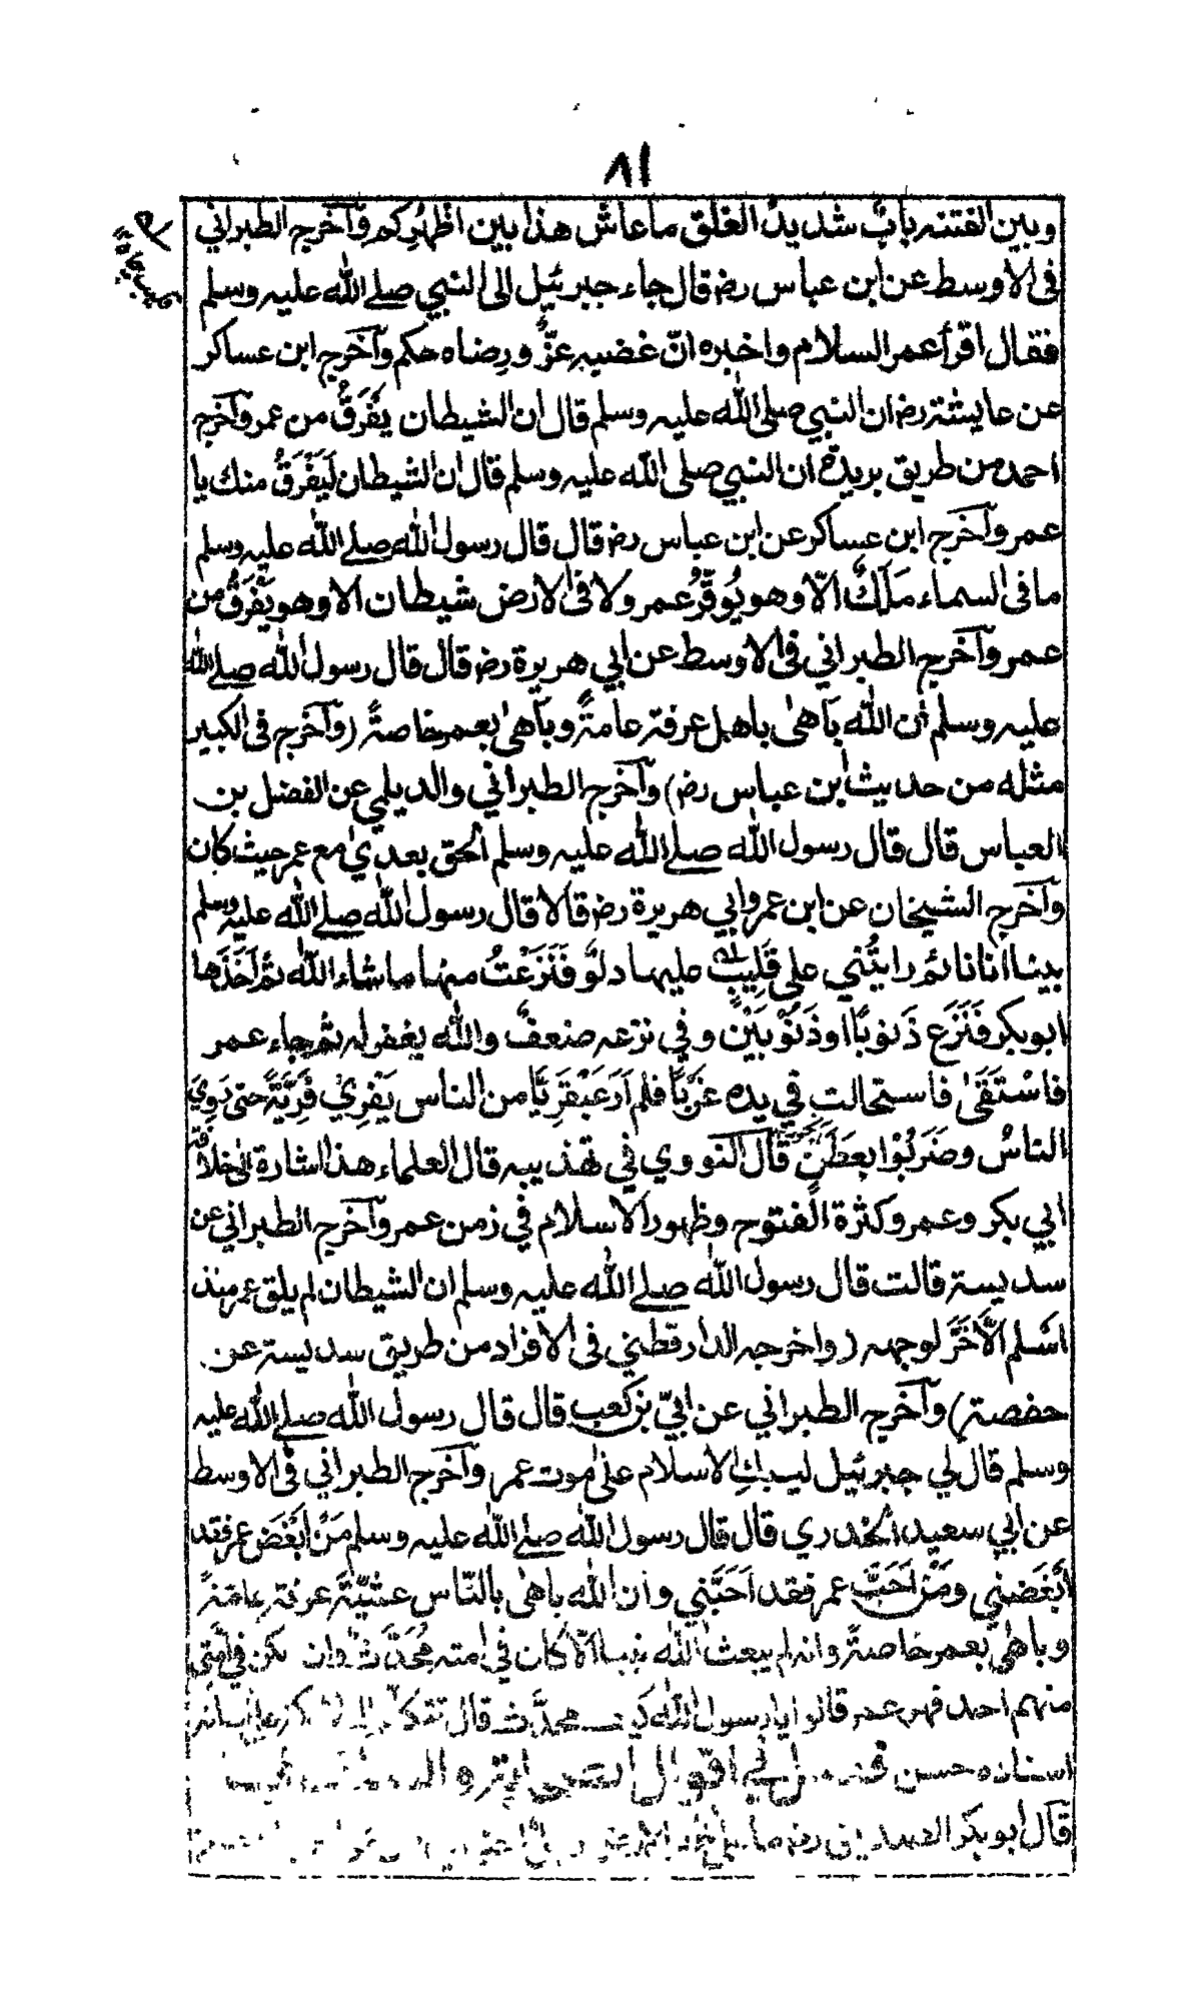 ٨١
وبين الفتنه بابٌ شديدُ الغلق ماعاش هذا بين اظهُرِكم وآخرج الطبراني
فى الاوسط عن ابن عباس رض قال جاء جبرئيل الى النبي صلے الله عليه وسلم
فقال اقرأ عمر السلام واخبره انّ غضبه عزٌّ ورضاه حكم وآخرج ابن عساكر
عن عايشة رض ان النبي صلى الله عليه وسلم قال ان الشيطان يَفْرَقُ من عمر وآخرج
احمد من طريق بريدة ان النبي صلى الله عليه وسلم قال ان الشيطان لَيَفْرَقُ منك يا
عمر وآخرج ابن عساكر عن ابن عباس رض قال قال رسول الله صلے الله عليه وسلم
ما فى السماء مَلَكٌ الّا وهو يُوَقِّرُ عمر ولا فى الارض شيطان الا وهو يَفْرَقُ من
عمر وآخرج الطبراني فى الاوسط عن ابي هريرة رض قال قال رسول الله صلے الله
عليه وسلم ان الله بَاهىٰ باهل عرفة عامةً وبَاهىٰ بعمر خاصةً (وآخرج فى الكبير
مثله من حديث ابن عباس رض) وآخرج الطبراني والديلمي عن الفضل بن
العباس قال قال رسول الله صلے الله عليه وسلم الحق بعدي مع عمر حيث كان
وآخرج الشيخان عن ابن عمر وابي هريرة رض قالا قال رسول الله صلے الله عليه وسلم
بينا انا نائم رايتُني على قَلِيبٍ عليها دلوٌ فَنَزَعْتُ منها ماشاء الله ثم اَخَذَها
ابوبكر فَنَزَع ذَنوبًا اوذَنُوْبَيْنِ وفي نزعه ضعفٌ والله يغفر له ثم جاء عمر
فاسْتَقَىٰ فاستحالتِ في يده غَرْبًا فلم اَرَ عَبْقَرِيًّا من الناس يَفْرِيْ فَرِيَّةً حتى رَوِيَ
الناسُ وضَرَبُوْا بِعَطَنٍ قال النووي في تهذيبه قال العلماء هذا اشارة الى خلافة
ابي بكر وعمر وكثرة الفتوح وظهور الاسلام في زمن عمر وآخرج الطبراني عن
سديسة قالت قال رسول الله صلے الله عليه وسلم ان الشيطان لم يلق عمر منذ
اسْلم الّا خَرَّ لوجهه (واخرجه الدارقطني فى الافراد من طريق سديسة عن
حفصة) وآخرج الطبراني عن ابيّ بن كعب قال قال رسول الله صلے الله عليه
وسلم قال لي جبرئيل ليبكِ الاسلام علىٰ موت عمر وآخرج الطبراني فى الاوسط
عن ابي سعيد الخدري قال قال رسول الله صلے الله عليه وسلم مَنْ اَبْغَضَ عمر فقد
اَبْغَضَني ومَنْ اَحَبَّ عمر فقد اَحَبَّني وان الله باهى بالنّاس عشيّةَ عرفة عامةً
وباهىٰ بعمر خاصةً وانه لم يبعث الله نبيا الّا كان في امته مُحَدَّث وان يكن في اُمَّتي
منهم احد فهو عمر قالوا يا رسول الله كيف محدَّث قال تتكلم
اسناده حسن فصل في اقوال الصحابة و
قال ابوبكر الصديق رض ما